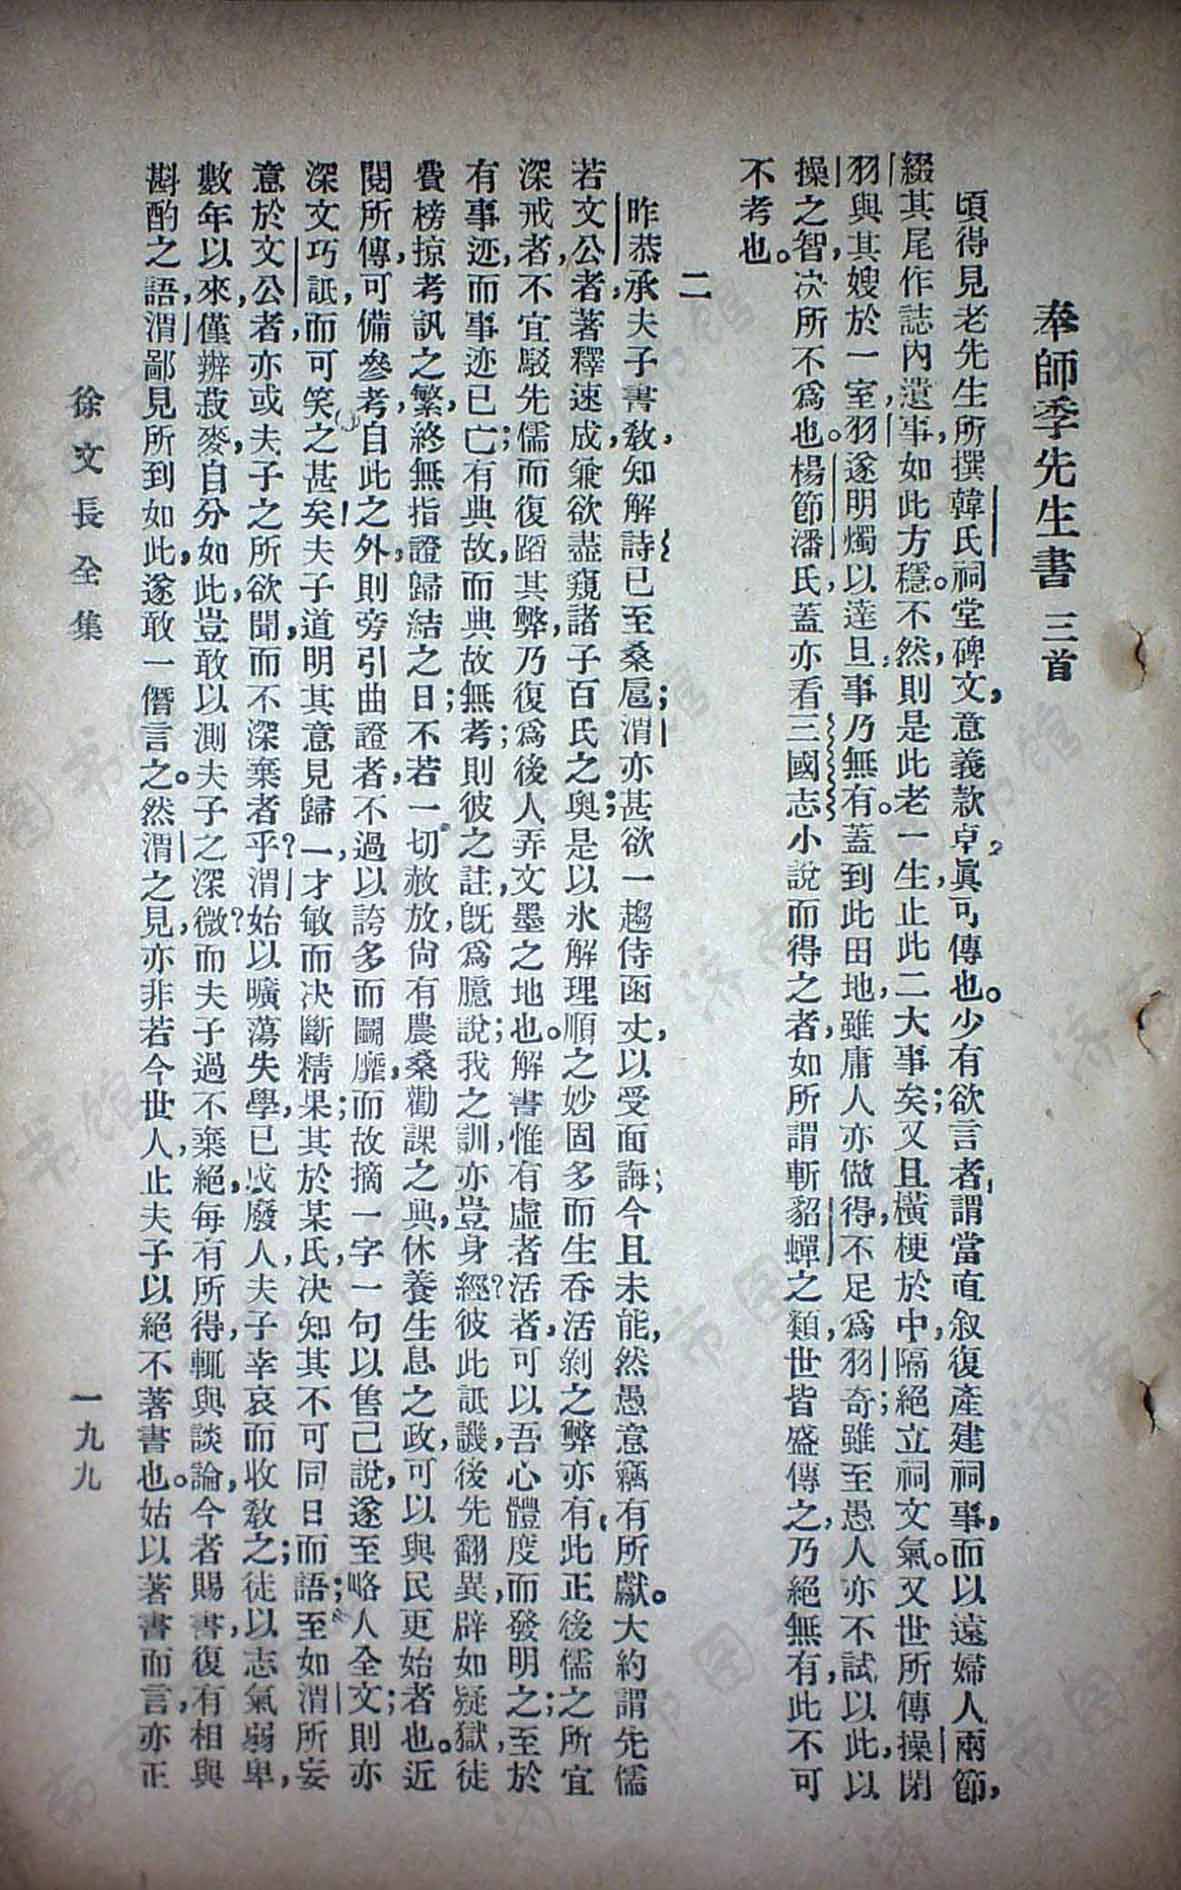 奉師季先生書 三首
頃得見老先生所撰韓氏祠堂碑文，意義欵卓，眞可傳也。少有欲言者，謂當直叙復產建祠事，而以遠婦人兩節，
綴其尾作誌內遺事，如此方穩。不然，則是此老一生止此二大事矣；又且橫梗於中，隔絕立祠文氣。又世所傳操閉
羽與其嫂於一室，羽遂明燭以達旦，事乃無有。蓋到此田地，雖庸人亦做得，不足爲羽奇；雖至愚人亦不試以此，以
操之智，决所不爲也。楊節潘氏，蓋亦看三國志小說而得之者，如所謂斬貂蟬之類，世皆盛傳之，乃絕無有，此不可
不考也。
二
昨恭承夫子書，敎知解詩已至桑扈；渭亦甚欲一趨侍函丈，以受面誨；今且未能，然愚意竊有所獻。大約謂先儒
若文公者，著釋速成，兼欲盡窺諸子百氏之奧；是以氷解理順之妙固多，而生吞活剝之弊亦有，此正後儒之所宜
深戒者，不宜駁先儒而復蹈其弊，乃復爲後人弄文墨之地也。解書惟有虛者活者，可以吾心體度而發明之；至於
有事迹，而事迹已亡；有典故，而典故無考；則彼之註，旣爲臆說；我之訓，亦豈身經？彼此詆譏，後先翻異，辟如疑獄，徒
費榜掠考訊之繁，終無指證歸結之日；不若一切赦放，尙有農桑勸課之典，休養生息之政，可以與民更始者也。近
閱所傳，可備參考，自此之外，則旁引曲證者，不過以誇多而鬭靡；而故摘一字一句以售己說，遂至略人全文；則亦
深文巧詆，而可笑之甚矣！夫子道明其意見歸一，才敏而决斷精果，其於某氏，决知其不可同日而語；至如渭所妄
意於文公者，亦或夫子之所欲聞，而不深棄者乎？渭始以曠蕩失學，已成廢人，夫子幸哀而收敎之；徒以志氣弱卑，
數年以來，僅辨菽麥，自分如此，豈敢以測夫子之深微？而夫子過不棄絕，每有所得，輒與談論，今者賜書，復有相與
斟酌之語，渭鄙見所到如此，遂敢一僭言之。然渭之見，亦非若今世人，止夫子以絕不著書也。姑以著書而言，亦正
徐文長全集
一九九